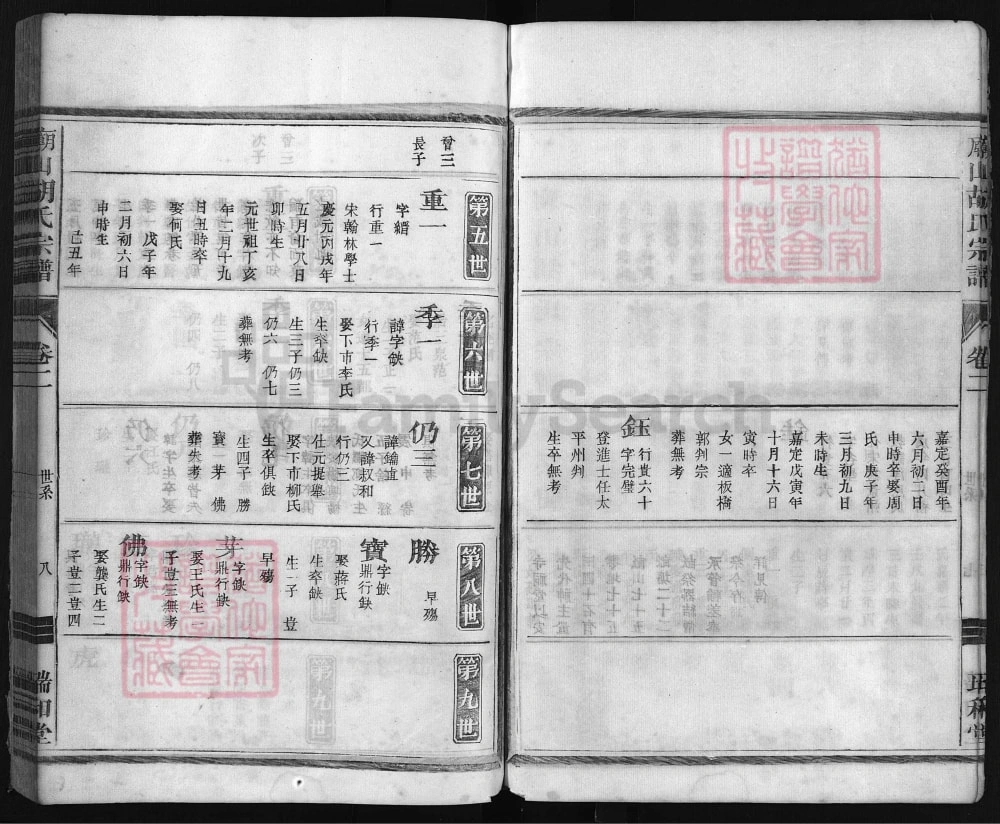 廟山胡氏宗譜
卷二
世系
嘉定癸酉年
六月初二日
申時卒娶周
氏庚子年
三月初九日
未時生
嘉定戊寅年
十月十六日
寅時卒
女一適板橋
郭判宗
葬無考
鈺
行貴六十
字完璧
登進士任太
平州判
生卒無考
第五世
第六世
第七世
第八世
第九世
曾三
長子
重一
字縉
行重一
宋翰林學士
慶元丙戌年
五月廿八日
卯時生
元世祖丁亥
年二月十九
日丑時卒
娶何氏
戊子年
二月初六日
申時生
己丑年
季一
諱字缺
行季一
娶下市李氏
生卒缺
生三子仍三
仍六 仍七
葬無考
仍三
諱鍮宜
又諱叔和
行仍三
仕元提舉
娶下市柳氏
生卒俱缺
生四子 勝
寶 芽 佛
葬失考
勝
早殤
寶
字缺
鼎行缺
娶蔣氏
生卒缺
生一子 豈
早殤
芽
字缺
鼎行缺
娶王氏生一
子豈三無考
佛
字缺
鼎行缺
娶龔氏生二
子豈二豈四
廟山胡氏宗譜
卷二
世系
八
瑞和堂
FamilySearch